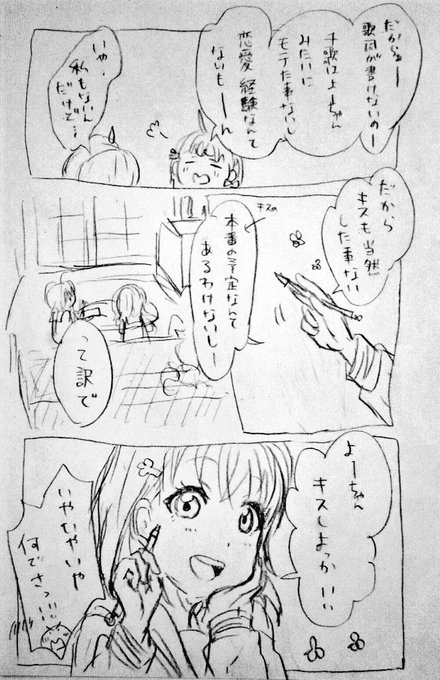 だからぁー
歌詞が書けないのー
千歌は よーちゃん
みたいに
モテた事ないし
恋愛経験なんて
ないもーん
いや、
私もないん
だけど…
だから
キスも当然
した事ない
キスの
本番の予定なんて
あるわけないしー
って訳で
よーちゃん
キスしよっか!!
いやいやいや
何でさっ!!